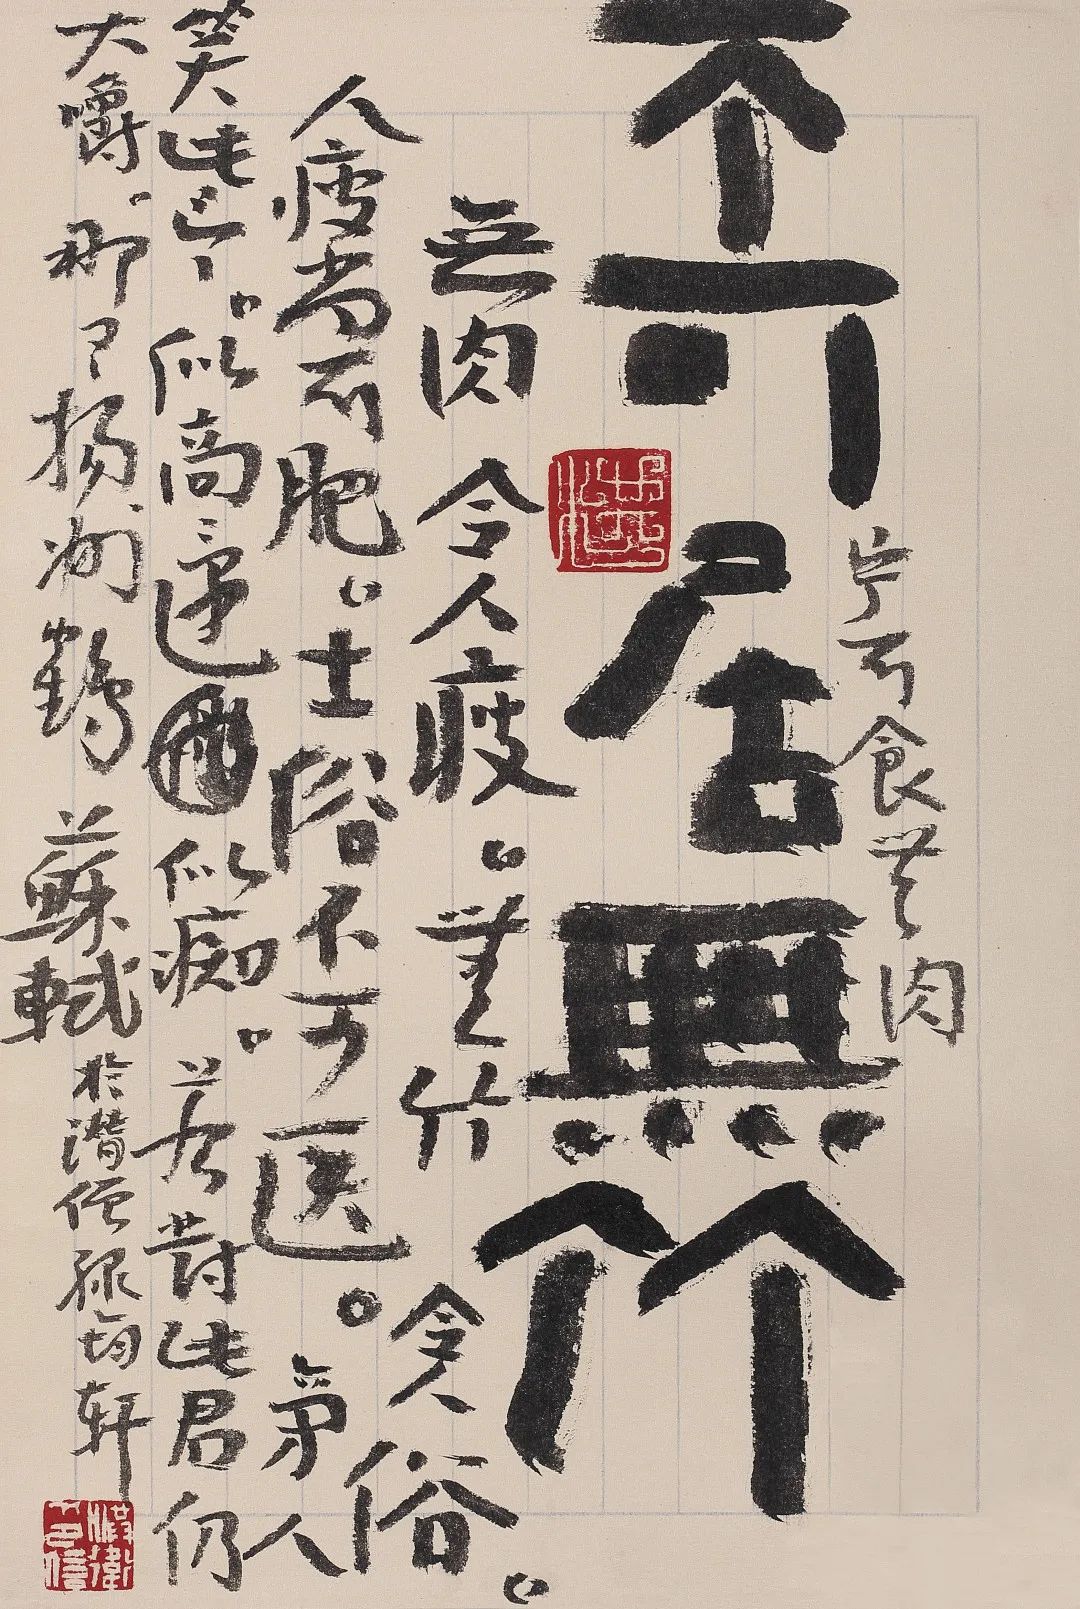 宁可食無肉
不可居無竹
無肉令人瘦。無竹令人俗。
人瘦尚可肥。士俗不可医。旁人
笑此言。似高還似痴。若對此君仍
大嚼。那有揚州鶴 蘇軾 於潛僧綠筠軒